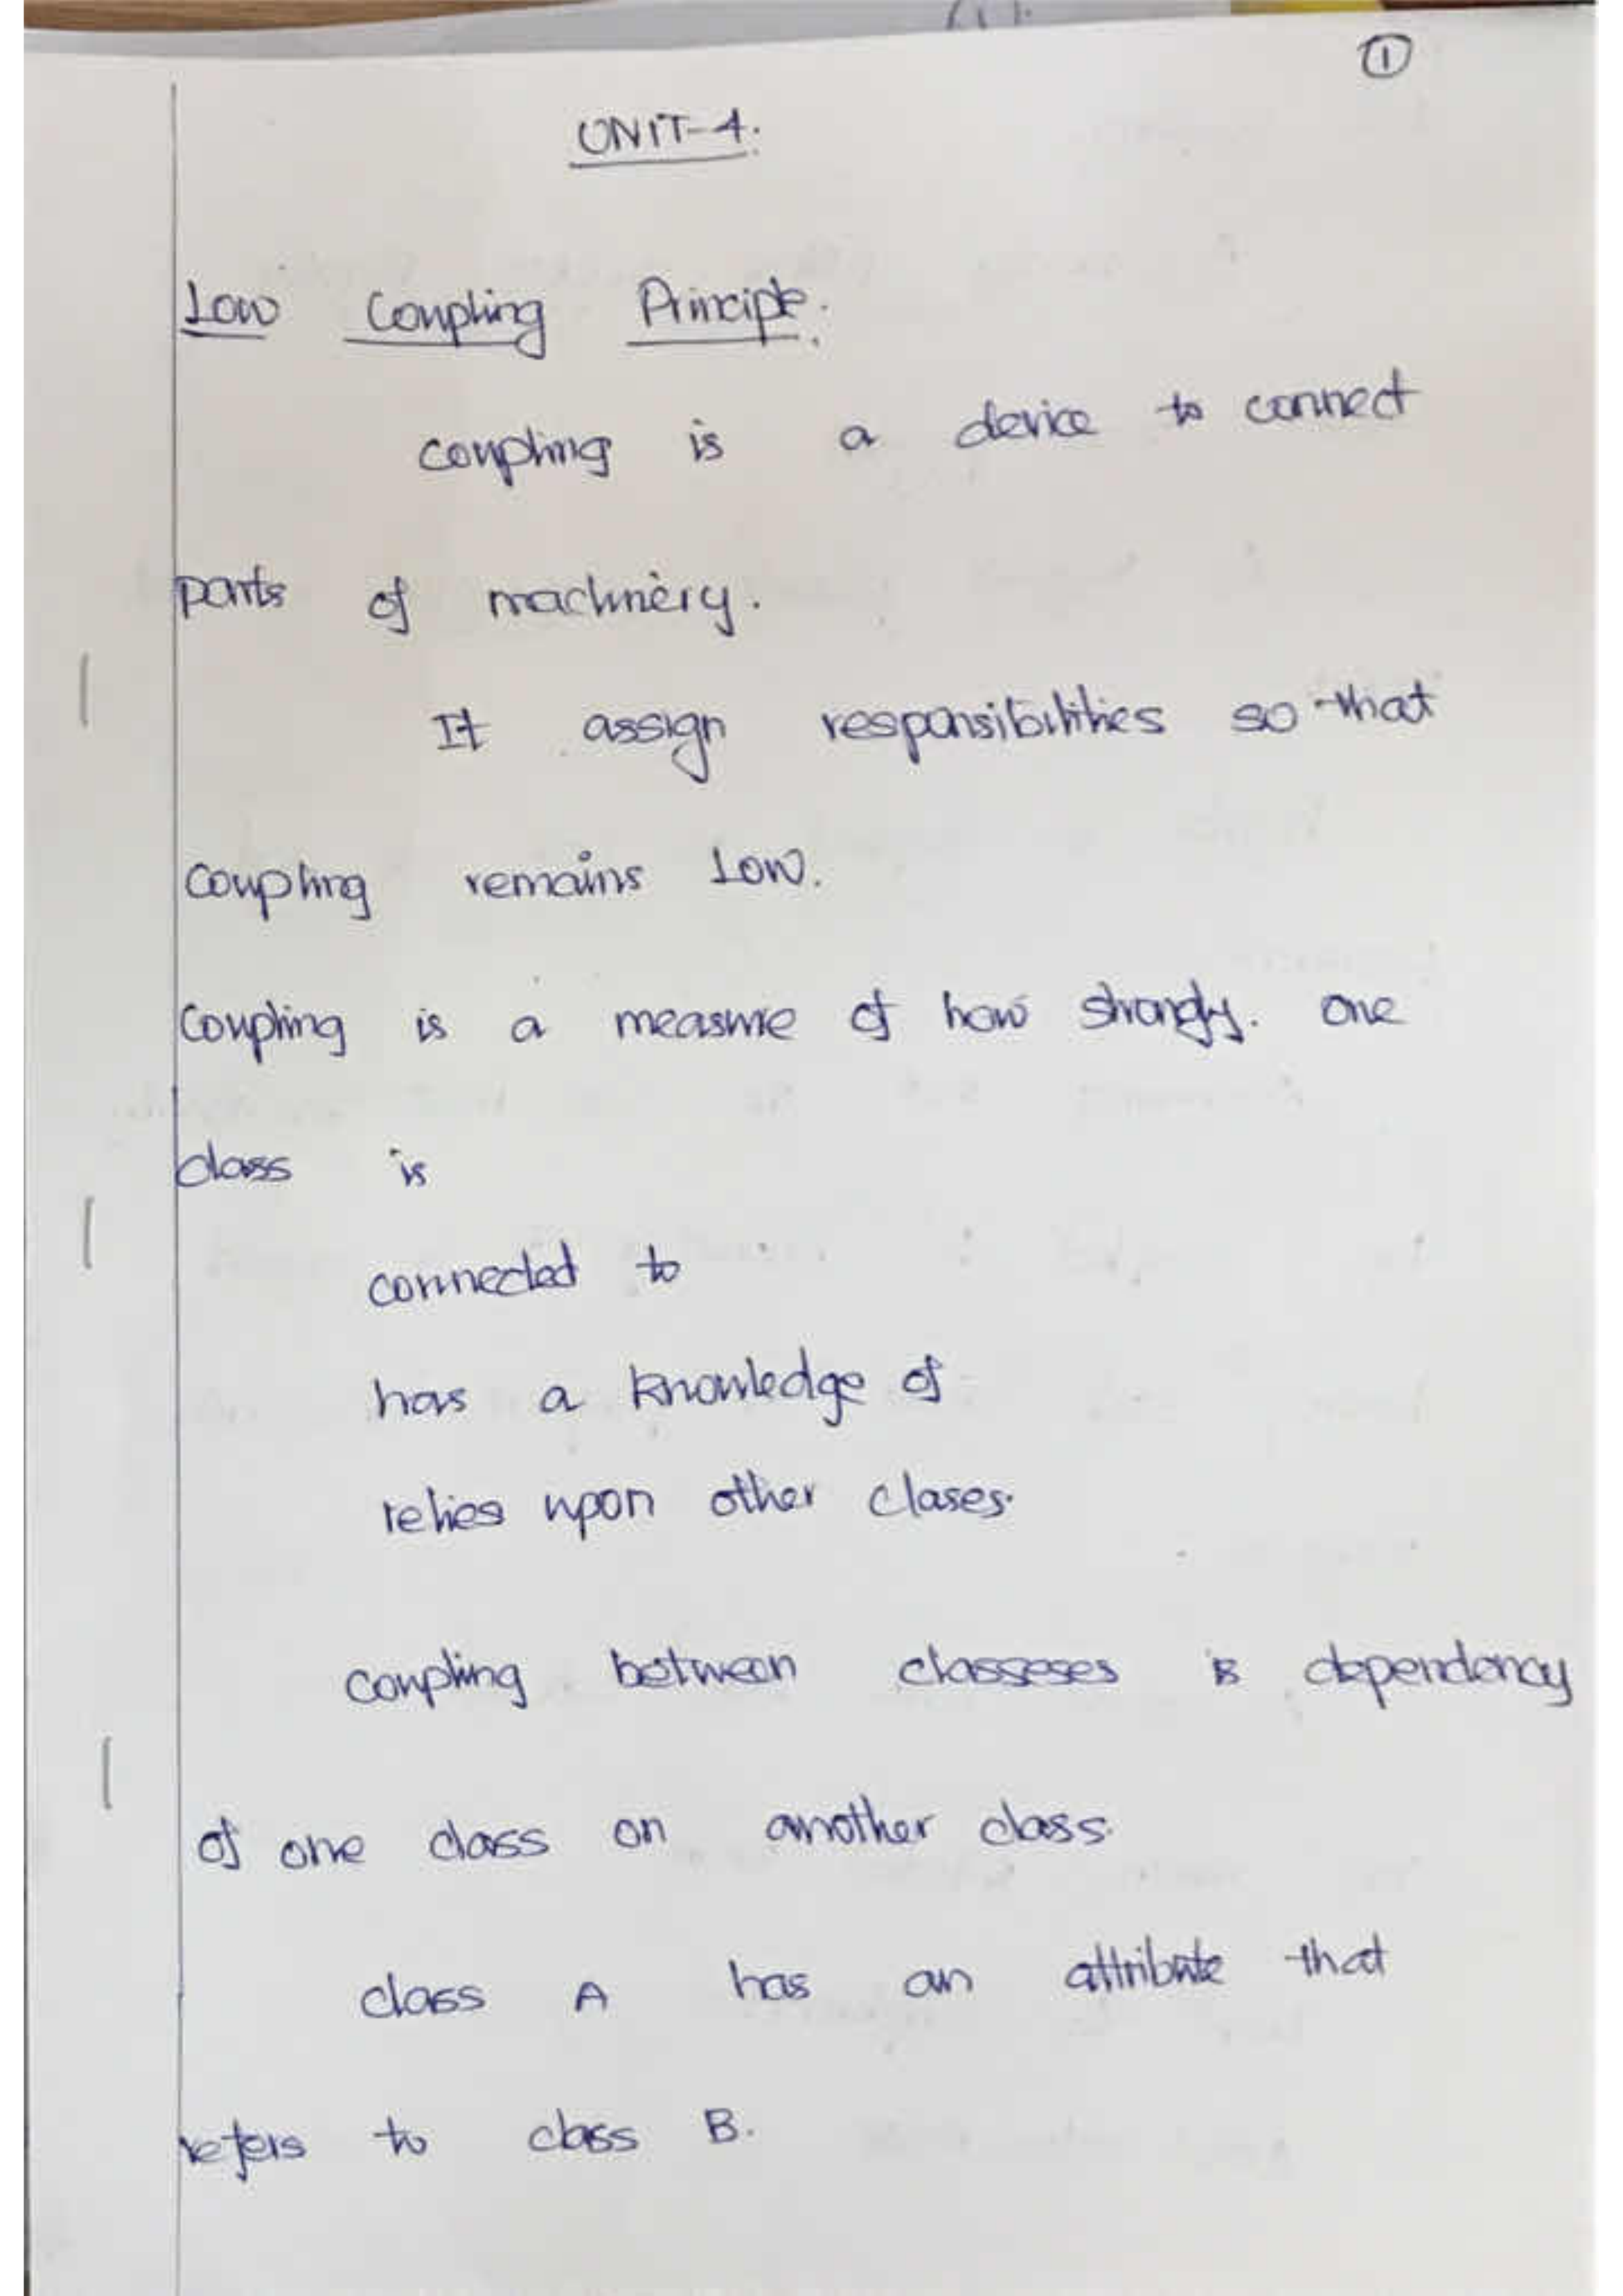 ①
UNIT-4.
Low Coupling Principle.
coupling is a device to connect
parts of machinery.
It assign responsibilities so that
coupling remains Low.
Coupling is a measure of how strongly. one
class is
connected to
has a knowledge of
relies upon other clases.
coupling between classeses is dependency
of one class on another class.
class A has an attribute that
refers to class B.